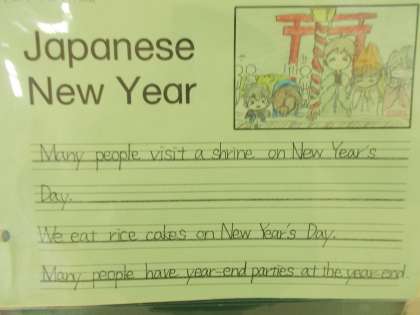 Japanese
New Year
Many people visit a shrine on New Year's
Day.
We eat rice cakes on New Year's Day.
Many people have year-end parties at the year-end.